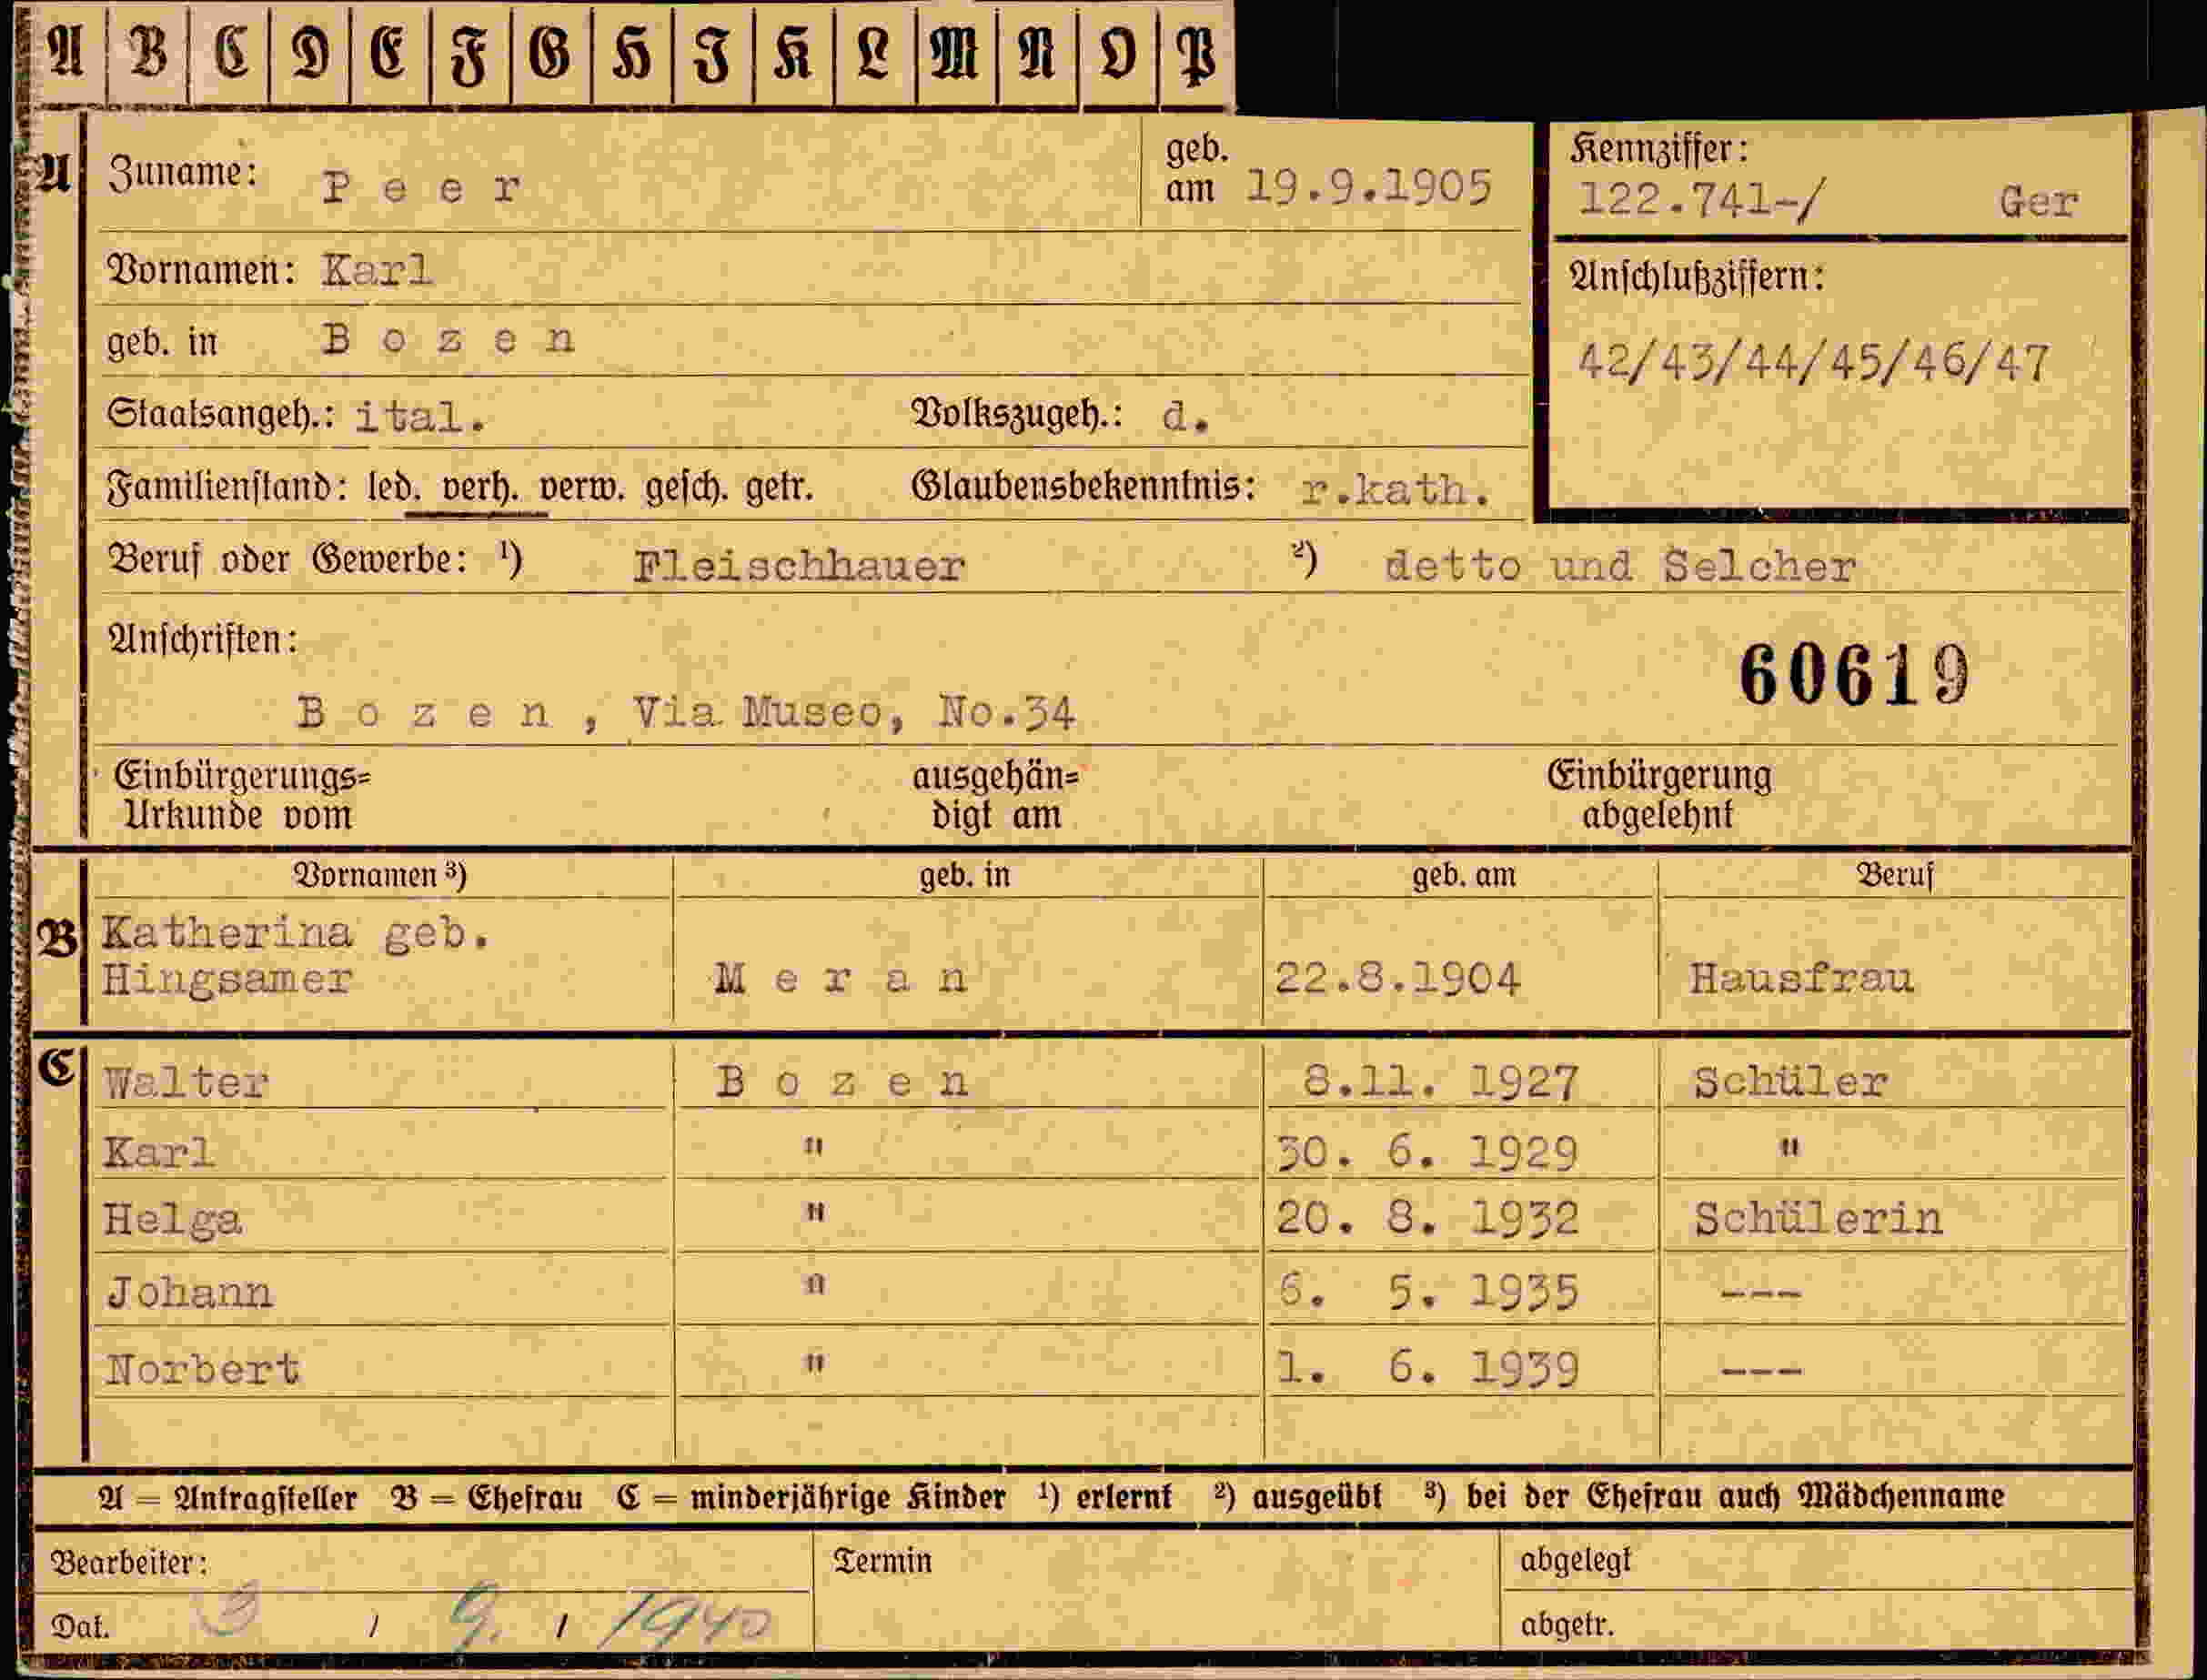 A B C D E F G H I K L M N O P
A Zuname: Peer geb. am 19.9.1905 Kennziffer: 122.741-/ Ger
Vornamen: Karl Anschlußziffern:
geb. in Bozen 42/43/44/45/46/47
Staatsangeh.: ital. Volkszugeh.: d.
Familienstand: led. verh. verw. gesch. getr. Glaubensbekenntnis: r.kath.
Beruf oder Gewerbe: ¹) Fleischhauer ²) detto und Selcher
Anschriften:
60619
Bozen, Via Museo, No.34
Einbürgerungs= ausgehän= Einbürgerung
Urkunde vom digt am abgelehnt
Vornamen ³) geb. in geb. am Beruf
B Katherina geb.
Hingsamer Meran 22.8.1904 Hausfrau
C Walter Bozen 8.11. 1927 Schüler
Karl " 30. 6. 1929 "
Helga " 20. 8. 1932 Schülerin
Johann " 6. 5. 1935 ---
Norbert " 1. 6. 1939 ---
A = Antragsteller B = Ehefrau C = minderjährige Kinder ¹) erlernt ²) ausgeübt ³) bei der Ehefrau auch Mädchenname
Bearbeiter: Termin abgelegt
Dat. 3 / 9. / 1940 abgetr.